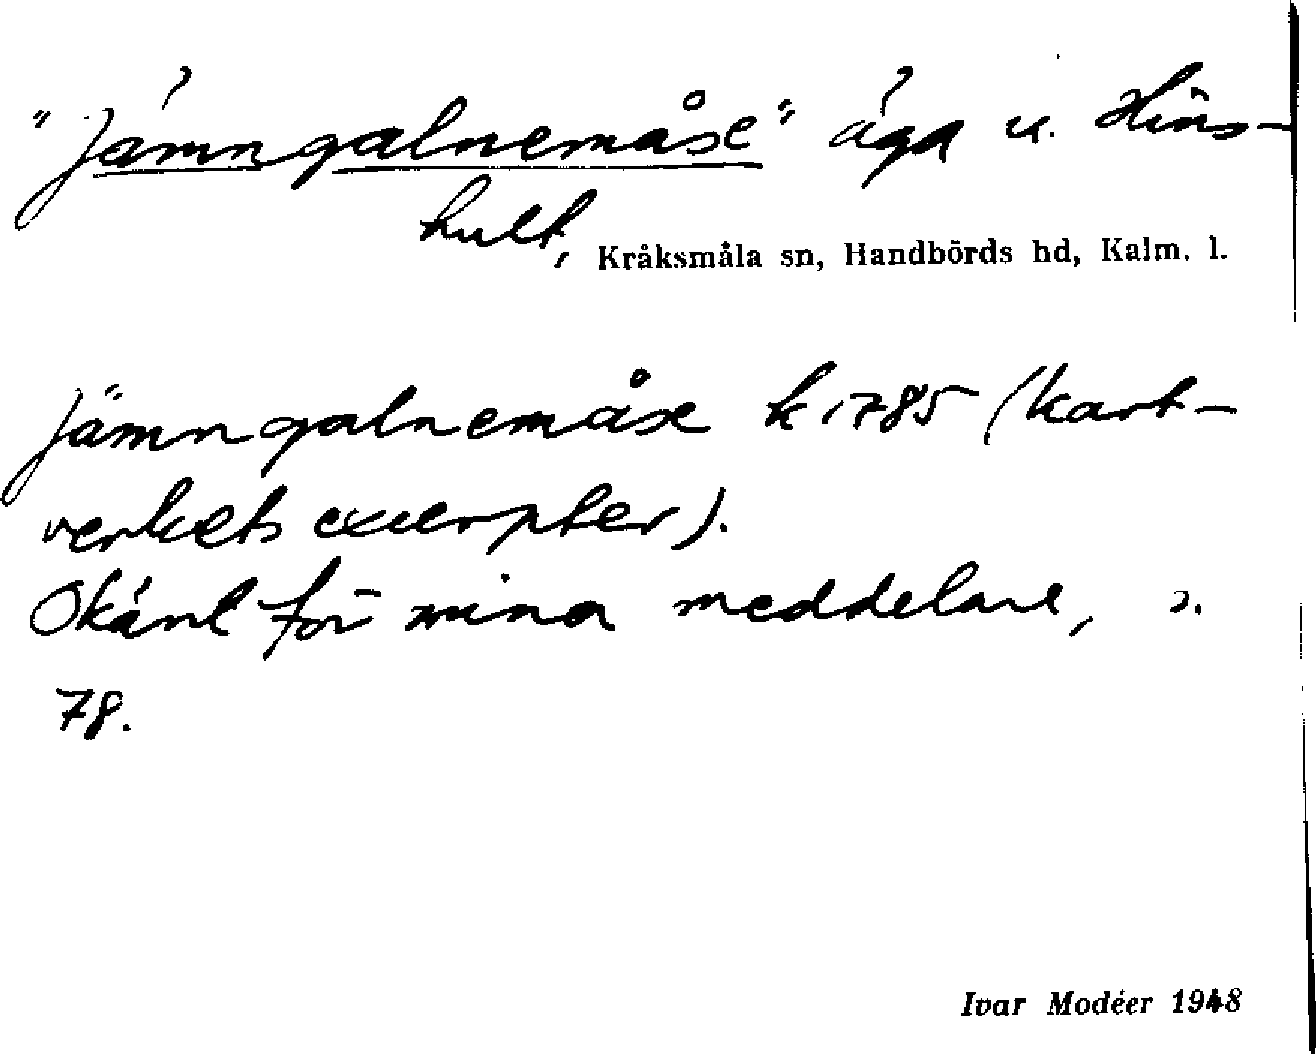 "Jämngalnemåse" äga u. Hins-
hult, Kråksmåla sn, Handbörds hd, Kalm. l.
Jämngalnemåse k 1785 (kart-
verkets excerpter).
Okänt för mina meddelare, s.
78.
Ivar Modéer 1948